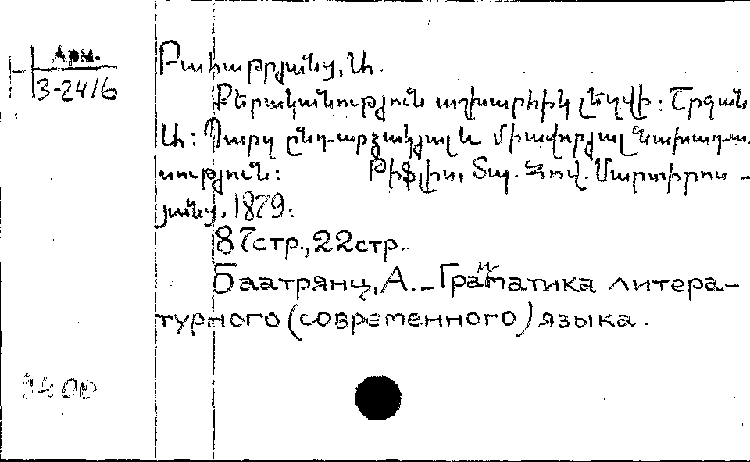 Арм.
3-2416
Բահաթրյանց, Ա.
Քերականություն աշխարհիկ լեզվի: Շրջան
Ա: Պարզ ընդարձակյալ և միավորյալ նախադա-
սություն: Թիֆլիս, Տպ. Հով. Մարտիրոս-
յանց, 1879.
87стр., 22стр.
Баатрянц, А. _ Грамматика литера-
турного (современного) языка.